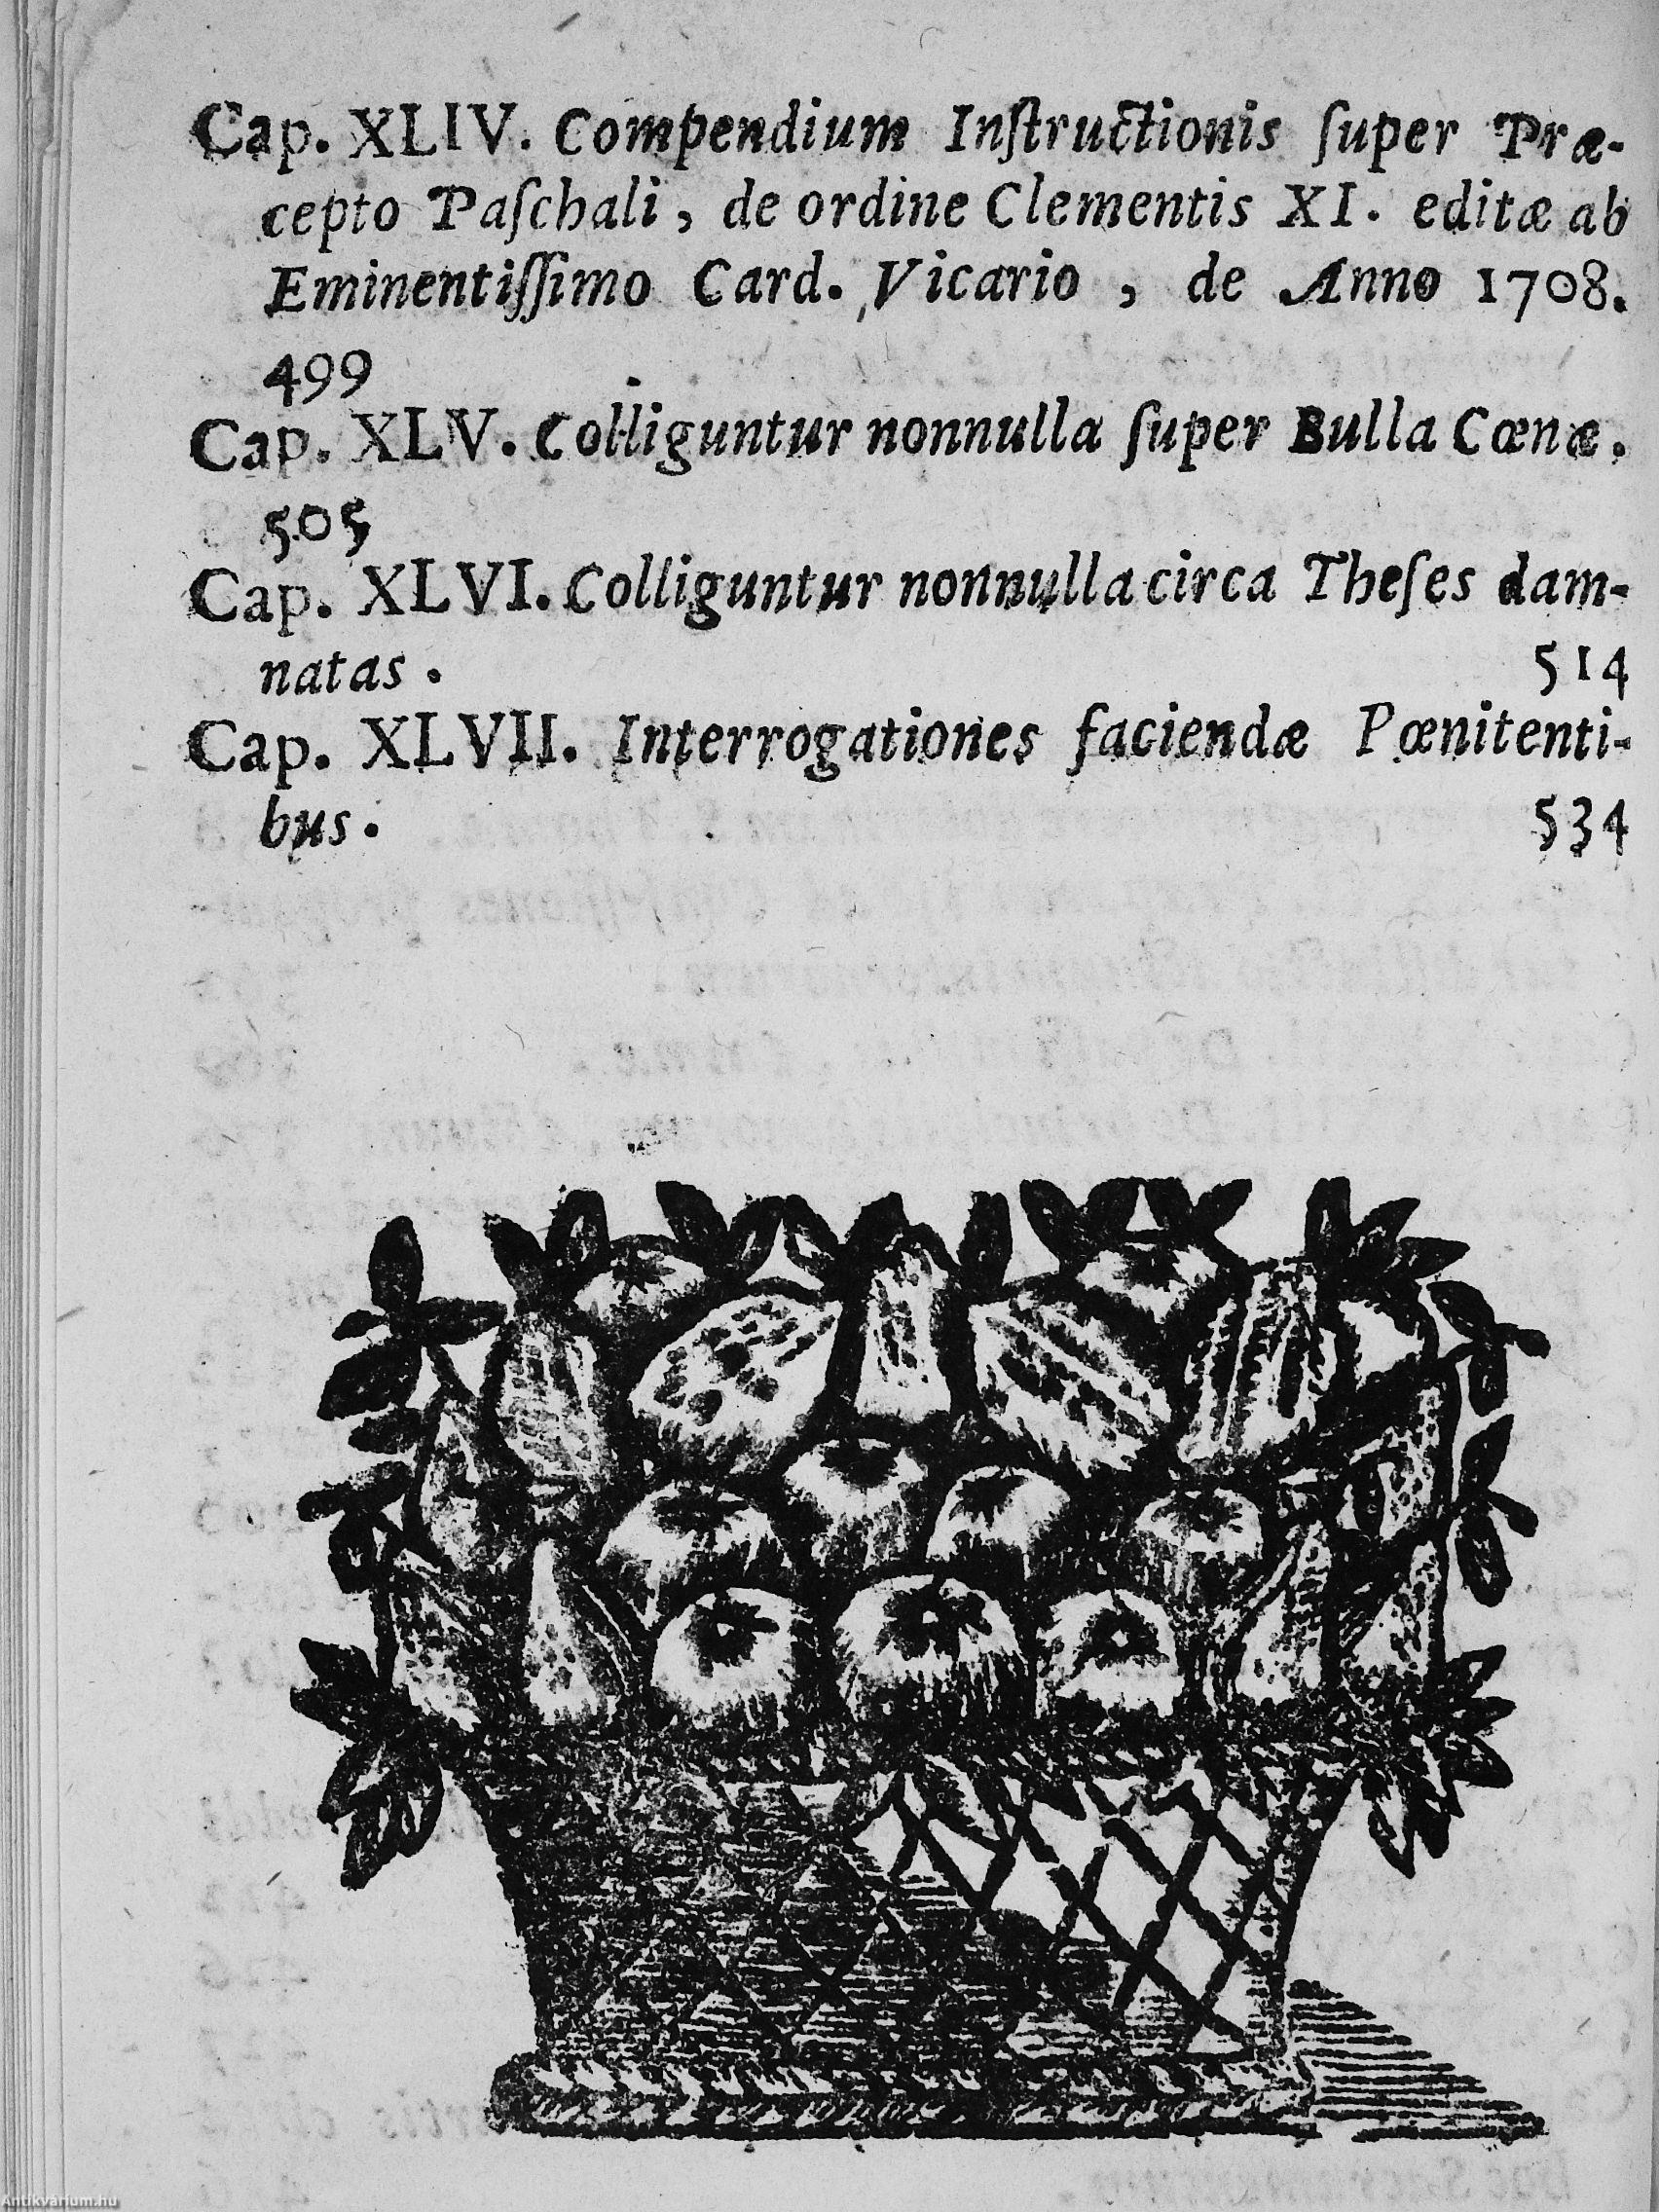 Cap. XLIV. Compendium Inſtructionis ſuper Præ-
cepto Paſchali, de ordine Clementis XI. editæ ab
Eminentiſſimo Card. Vicario, de Anno 1708.
499
Cap. XLV. Colliguntur nonnulla ſuper Bulla Cœnæ.
505
Cap. XLVI. Colliguntur nonnulla circa Theſes dam-
natas. 514
Cap. XLVII. Interrogationes faciendæ Pœnitenti-
bus. 534
Antikvarium.hu